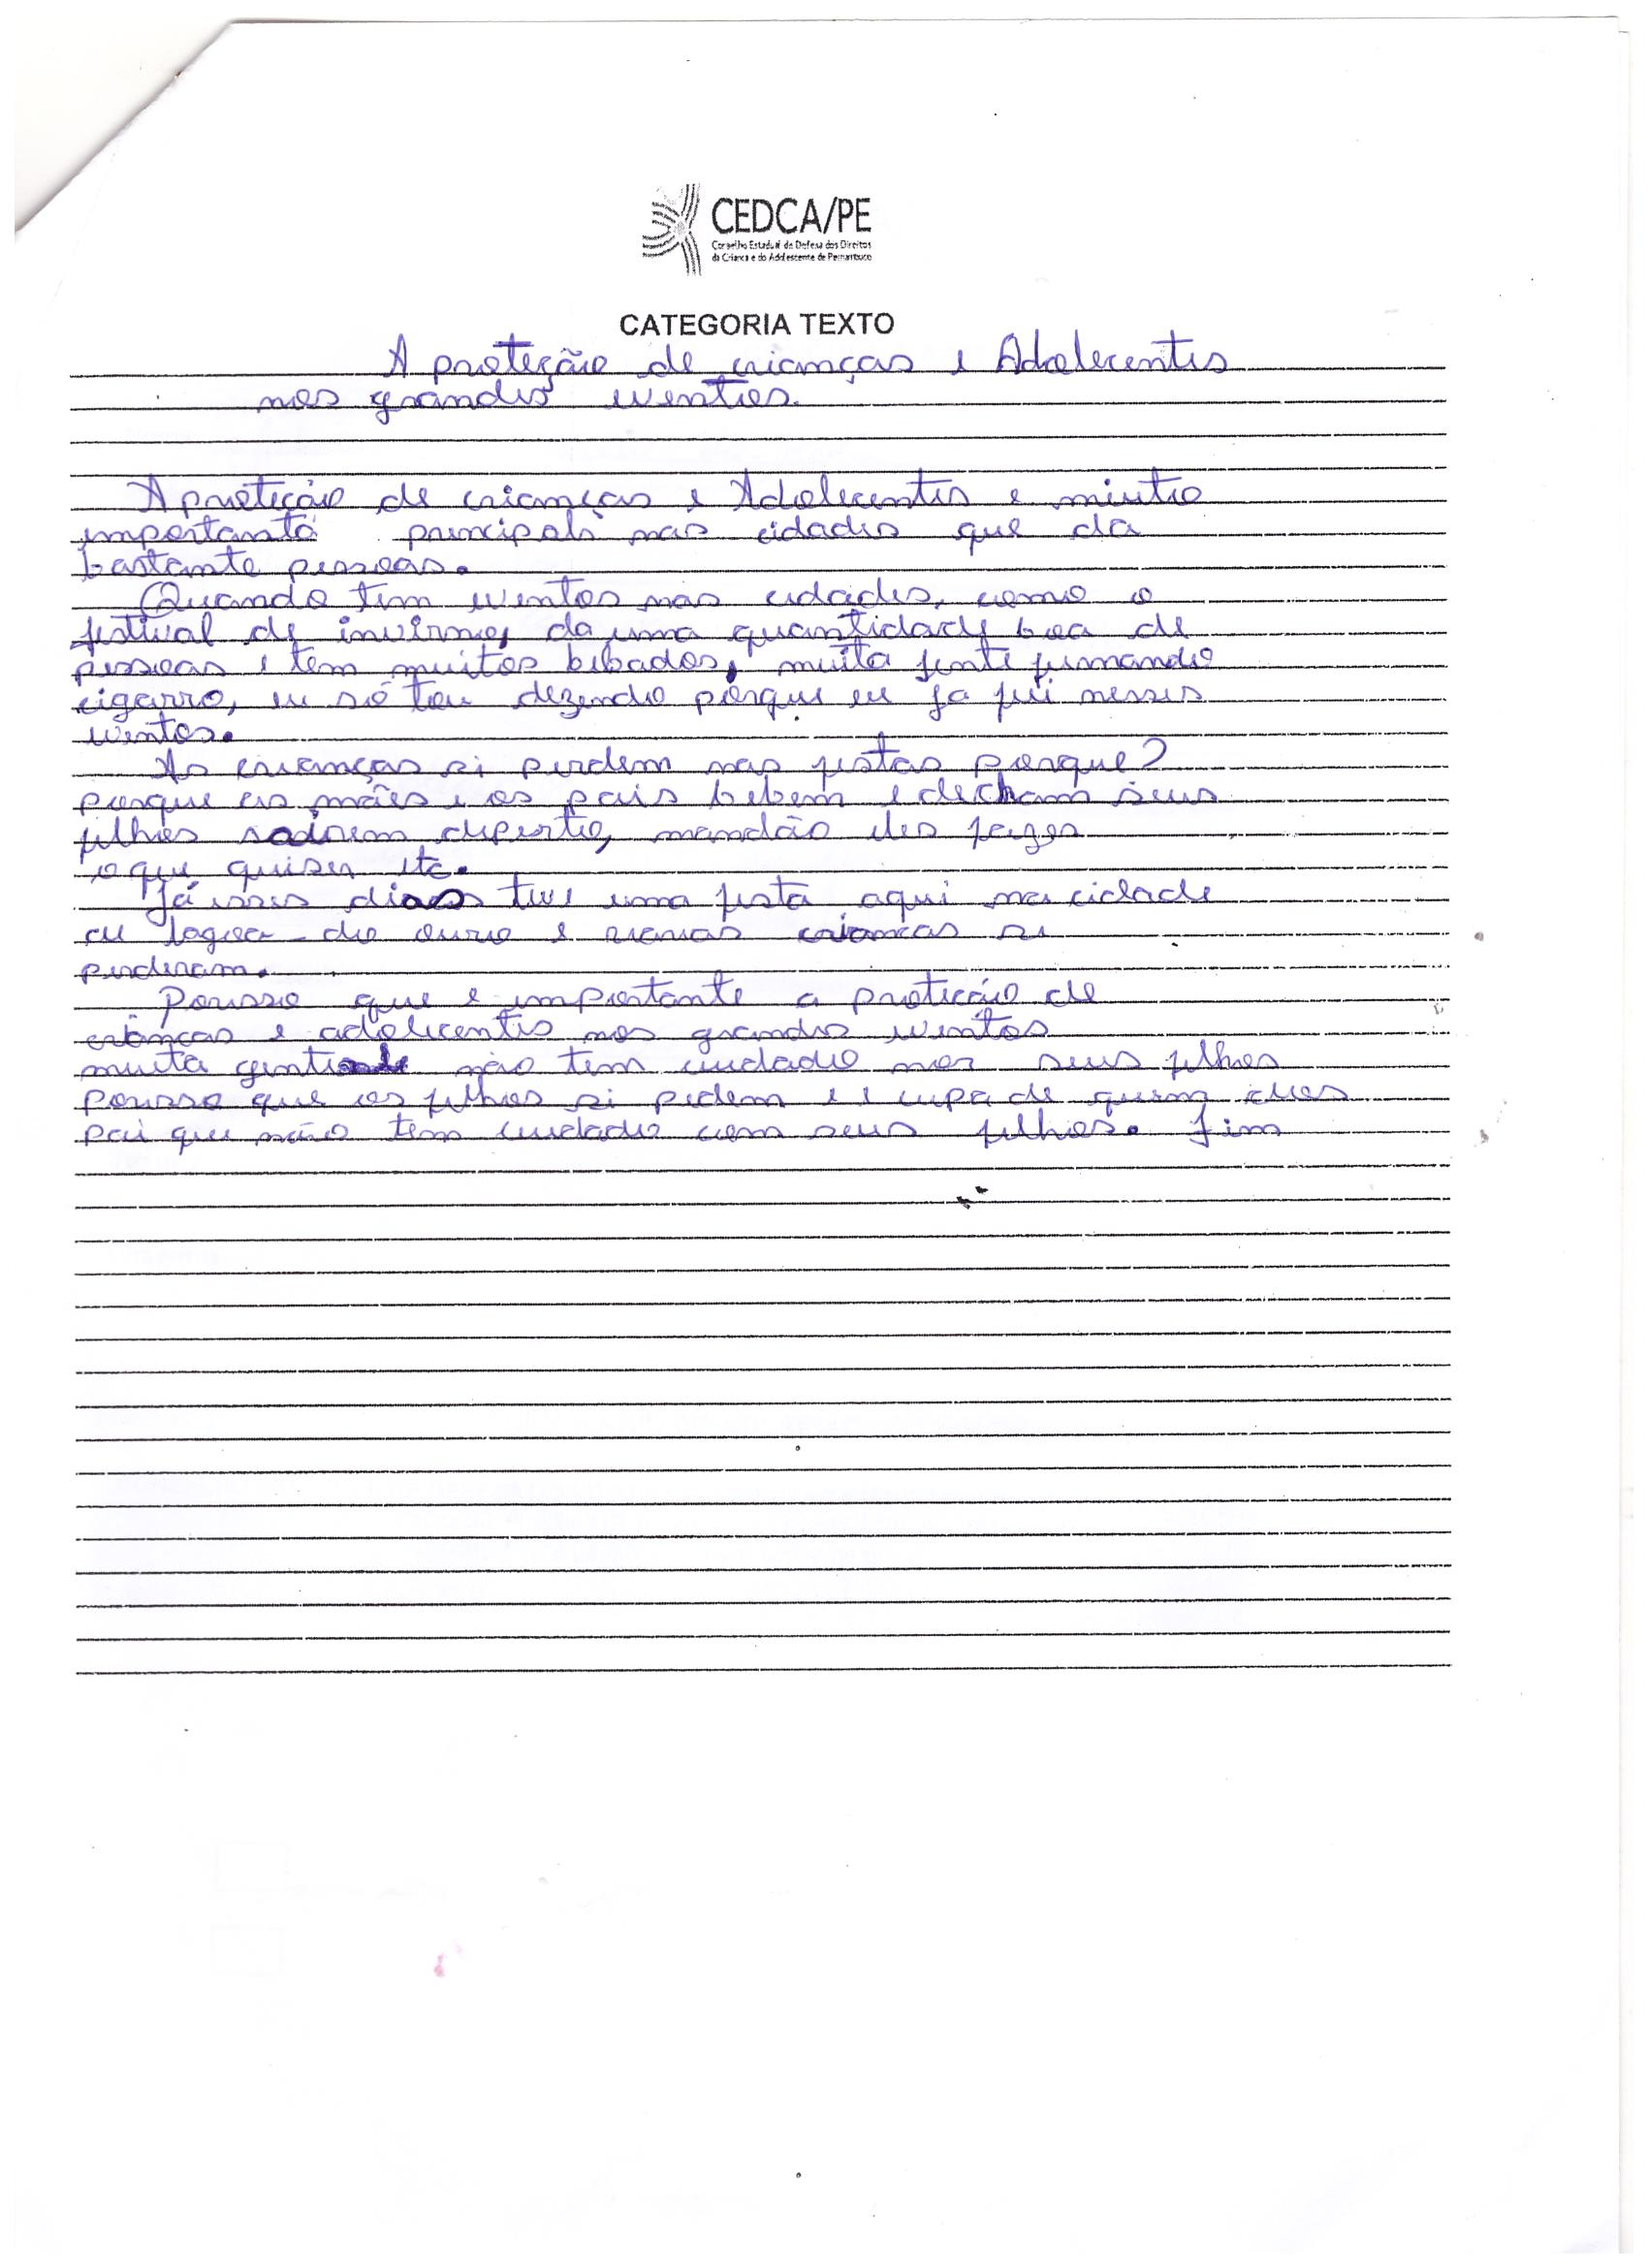 CEDCA/PE
Conselho Estadual de Defesa dos Direitos
da Criança e do Adolescente de Pernambuco
CATEGORIA TEXTO
A proteção de crianças e Adolecentes
nos grandes eventos.
A proteção de crianças e Adolecentes e miutio
importante principali nas cidades que da
bastante pessoas.
Quando tem eventos nas cidades, como o
festival de inverno, da uma quantidade boa de
pessoas e tem muitos bebados, muita jente fumando
cigarro, eu só tou dezendo porque eu ja fui nesses
eventos.
As crianças si perdem nas festas porque?
porque as mães e os pais bebem e decham seus
filhos sairem diperto, mandão eles fazer
o que quiser etc.
Já esses dias teve uma festa aqui na cidade
de lagoa do ouro e crianças si
perderam.
Porisso que e importante a proteção de
crianças e adolecentes nos grandes eventos
muita gente não tem cuidado nos seus filhos
porisso que os filhos si pedem e e cupa de quem dos
pai que não tem cuidado com seus filhos. fim